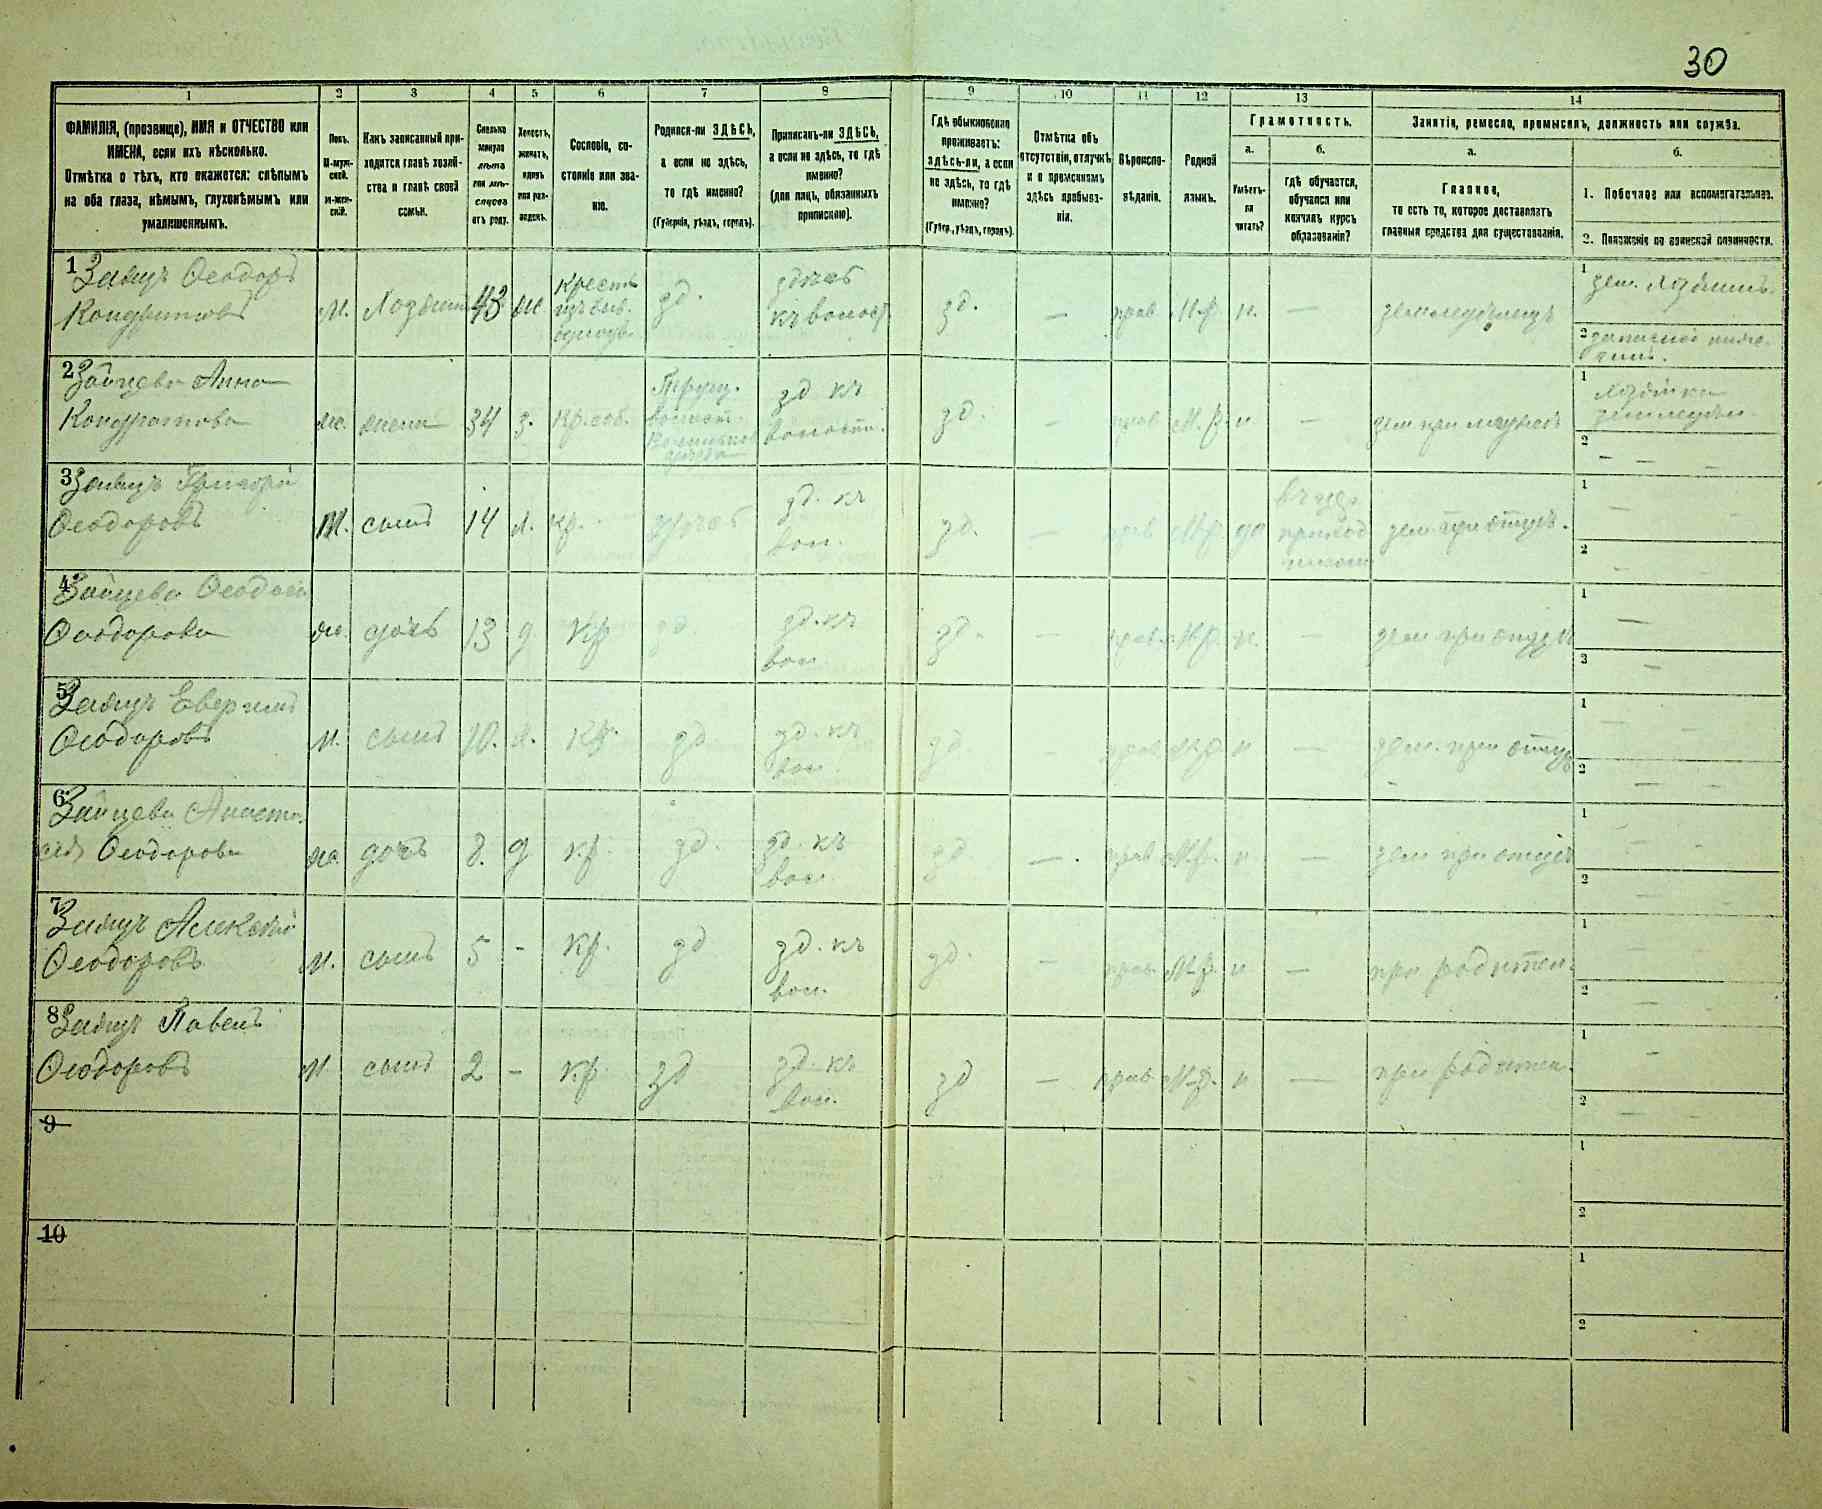 30
1
2
3
4
5
6
7
8
9
10
11
12
13
14
ФАМИЛІЯ, (прозвище), ИМЯ и ОТЧЕСТВО или
ИМЕНА, если ихъ нѣсколько.
Отмѣтка о тѣхъ, кто окажется: слѣпымъ
на оба глаза, нѣмымъ, глухонѣмымъ или
умалишеннымъ.
Полъ.
М-муж-
ской.
Ж-жен-
скій.
Какъ записанный при-
ходится главѣ хозяй-
ства и главѣ своей
семьи.
Сколько
минуло
лѣтъ
или мѣ-
сяцевъ
отъ роду.
Холостъ,
женатъ,
вдовъ
или раз-
веденъ.
Сословіе, со-
стояніе или зва-
ніе.
Родился-ли ЗДѢСЬ,
а если не здѣсь,
то гдѣ именно?
(Губернія, уѣздъ, городъ).
Приписанъ-ли ЗДѢСЬ,
а если не здѣсь, то гдѣ
именно?
(для лицъ, обязанныхъ
припискою).
Гдѣ обыкновенно
проживаетъ:
здѣсь-ли, а если
не здѣсь, то гдѣ
именно?
(Губер., уѣздъ, городъ).
Отмѣтка объ
отсутствіи, отлучкѣ
и о временномъ
здѣсь пребыва-
ніи.
Вѣроиспо-
вѣданіе.
Родной
языкъ.
Грамотность.
а.
Умѣетъ-
ли
читать?
б.
гдѣ обучается,
обучался или
кончилъ курсъ
образованія?
Занятіе, ремесло, промыселъ, должность или служба.
а.
Главное,
то есть то, которое доставляетъ
главныя средства для существованія.
б.
1. Побочное или вспомогательное.
2. Положеніе по воинской повинности.
1 Заяцъ Ѳеодоръ
М. Хозяинъ 43 ж
Крест. изъ
зд.
къ волост.
зд. — прав М.р. н. —
1 зем. Хозяинъ.
2
2 Зайцева Анна
Кондратова же. жена 34 з. Кр.
зд къ
волости.
зд. — прав М.р. н —
1 Хозяйка
2 — —
3 Заяцъ Григорій
Ѳеодоровъ М. сынъ 14 х. кр.
зд. къ
вол.
зд. — прав М.р. да
зем. при отцѣ.
1 —
2 —
4 Зайцева
Ѳеодорова же. дочь 13 д Кр зд.
зд. къ
вол
зд. — прав. М.р. н. — зем при отцѣ
1 —
2 —
5 Заяцъ
Ѳеодоровъ М. сынъ 10. х. Кр. зд
зд. къ
вол.
зд — прав М.р н — зем. при отцѣ
1 —
2 —
6 Зайцева Анаста-
сія Ѳеодорова же. дочь 8. д кр. зд.
зд. къ
вол.
зд — прав М.р. н — зем при отцѣ
1 —
2 —
7 Заяцъ Алексѣй
Ѳеодоровъ М. сынъ 5 - Кр. зд
зд. къ
вол.
зд. — прав М.р. н — при родител.
1 —
2 —
8 Заяцъ Павелъ
Ѳеодоровъ М сынъ 2 - кр. зд
зд. къ
вол.
зд — прав М.р. н — при родител.
1 —
2 —
9
1
2
10
1
2